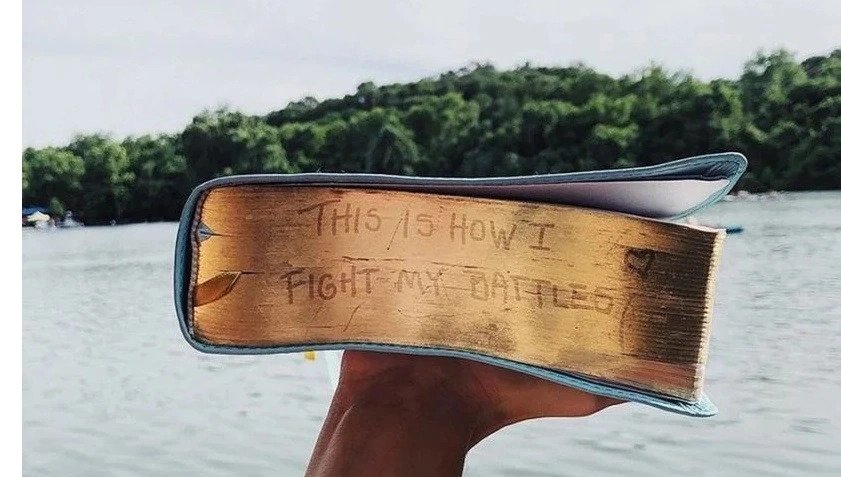 THIS IS HOW I
FIGHT MY BATTLES